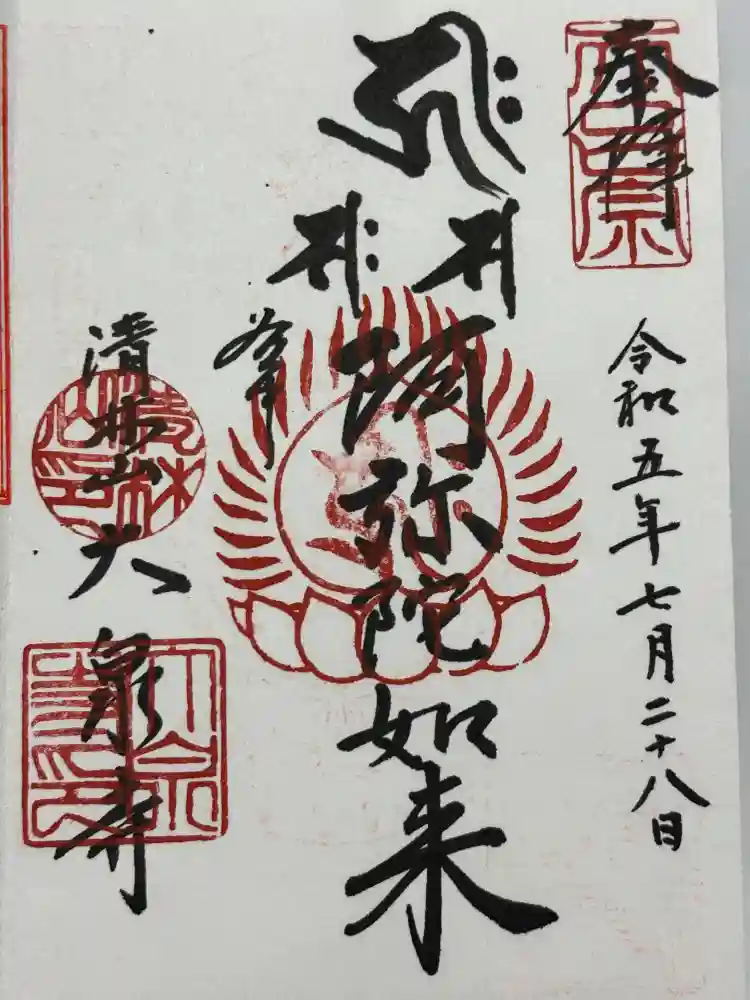 奉拝
令和五年七月二十八日
阿弥陀如来
清林山大泉寺